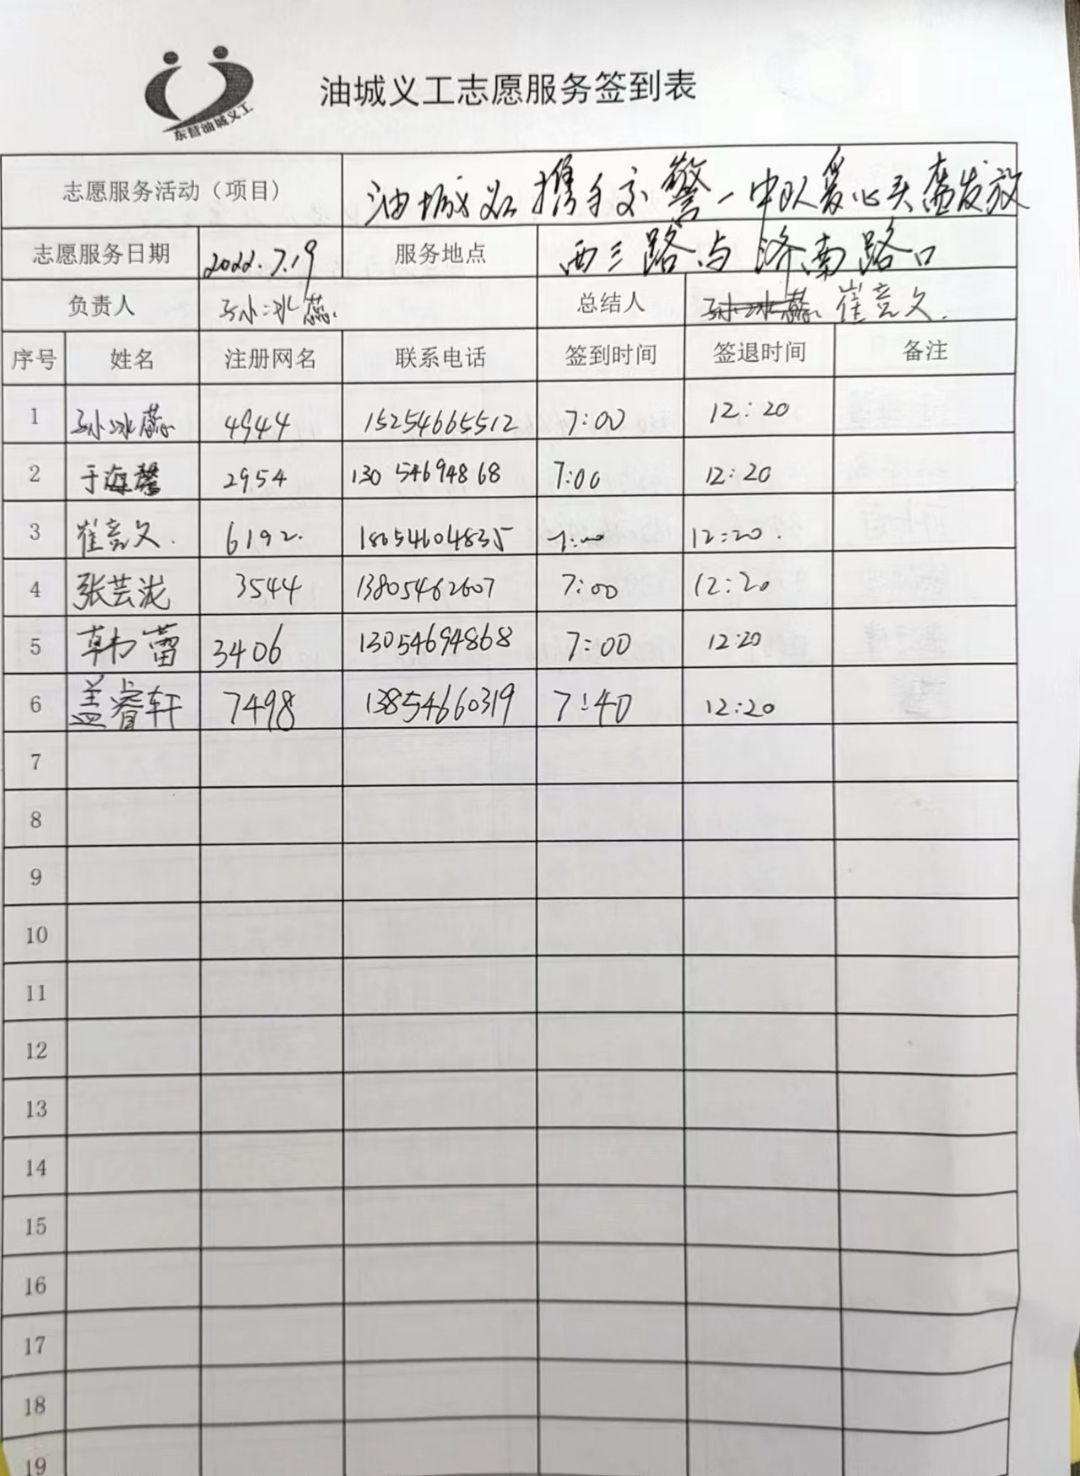 东营油城义工
油城义工志愿服务签到表
志愿服务活动（项目） 油城义工携手交警一中队爱心头盔发放
志愿服务日期 2022.7.19 服务地点 西三路与济南路口
负责人 孙冰蕊 总结人 孙冰蕊 崔竞文
序号 姓名 注册网名 联系电话 签到时间 签退时间 备注
1 孙冰蕊 4944 15254665512 7:00 12:20
2 于海馨 2954 13054694868 7:00 12:20
3 崔竞文 6192 18054604835 7:00 12:20
4 张芸泷 3544 13805462607 7:00 12:20
5 韩蕾 3406 13054694868 7:00 12:20
6 盖睿轩 7498 13854660319 7:40 12:20
7
8
9
10
11
12
13
14
15
16
17
18
19